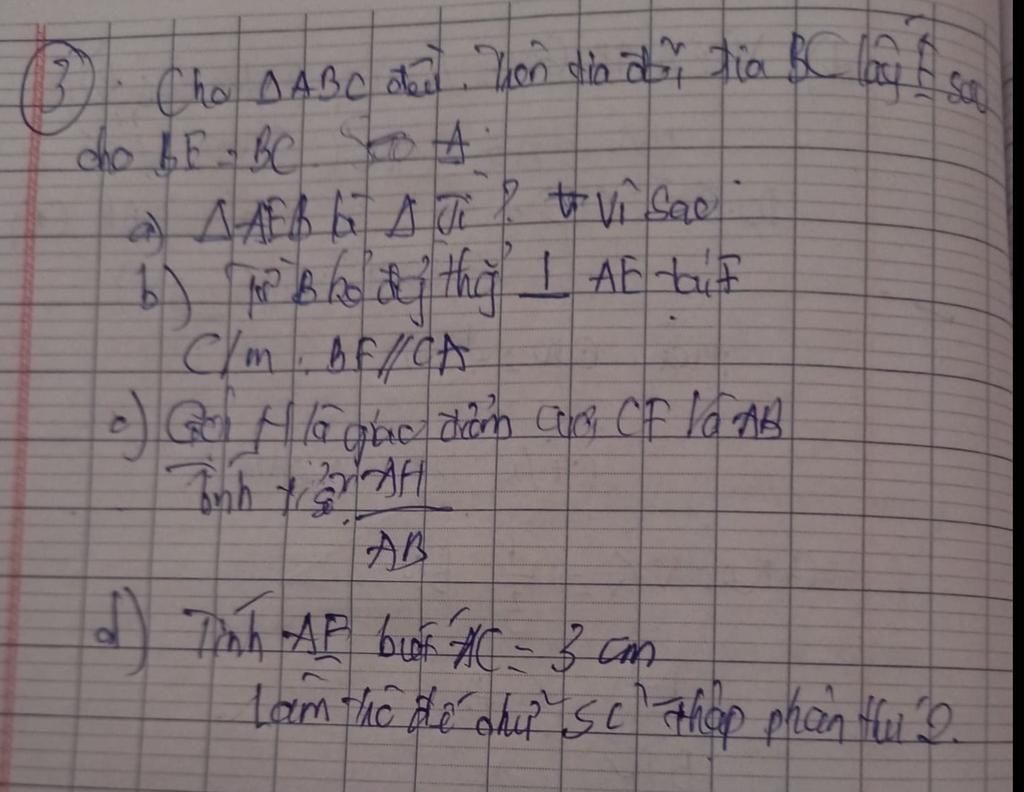 3. Cho ΔABC đều. Trên tia đối tia BC lấy E sao
cho BE = BC A
a) ΔAEB là Δ gì? Vì sao
b) Từ B kẻ đg thg ⊥ AE tại F
C/m. BF//CA
c) Gọi H là giao điểm của CF và AB
Tính tỉ số AH
AB
d) Tính AE biết AC = 3 cm
Làm đến chữ số thập phân thứ 2.